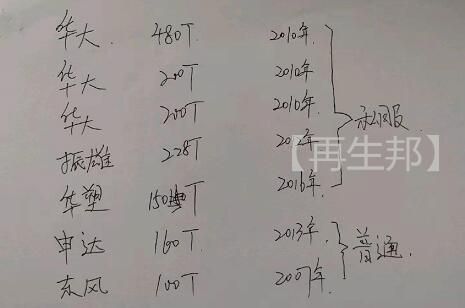 华大. 480T 2010年.
华大 200T 2010年
华大 200T 2010年.
振雄 228T 2012年.
华塑 150T 2016年.
申达 160T. 2013年.
东风 100T 2007年.
永伺服.
普通.
【再生邦】